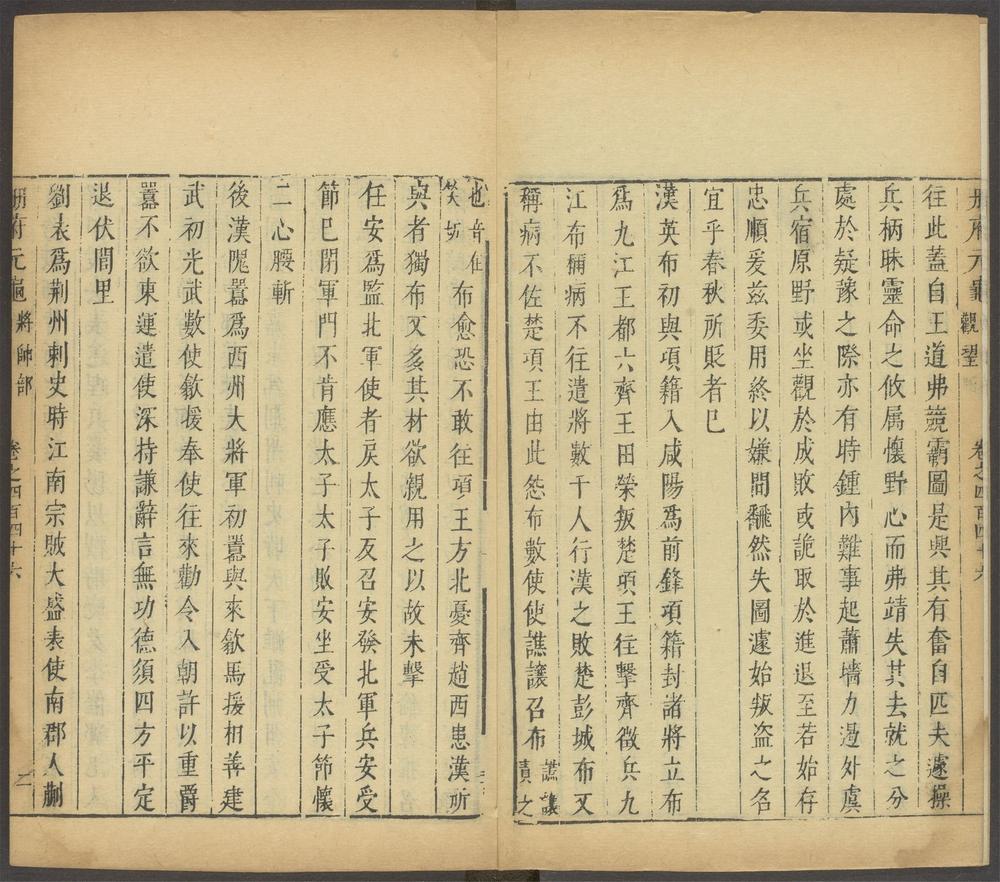 冊府元龜 觀望 卷之四百四十六
往此蓋自王道弗競霸圖是興其有奮自匹夫遽操
兵柄昧靈命之攸属懷野心而弗靖失其去就之分
處於疑豫之際亦有時鍾內難事起蕭墻力遏外虞
兵宿原野或坐觀於成敗或詭取於進退至若始存
忠順爰兹委用終以嫌間飜然失圖遽始叛盗之名
宜乎春秋所貶者已
漢英布初與項籍入咸陽爲前鋒項籍封諸將立布
爲九江王都六齊王田榮叛楚項王往擊齊徵兵九
江布稱病不往遣將數千人行漢之敗楚彭城布又
稱病不佐楚項王由此怨布數使使譙讓召布譙讓責之
也音在笑切布愈恐不敢往項王方北憂齊趙西患漢所
與者獨布又多其材欲親用之以故未擊
任安爲監北軍使者戾太子反召安發北軍兵安受
節已閉軍門不肯應太子太子敗安坐受太子節懷
二心腰斬
後漢隗囂爲西州大將軍初囂與來歙馬援相善建
武初光武數使歙援奉使往來勸令入朝許以重爵
囂不欲東連遣使深持謙辭言無功德須四方平定
退伏閭里
劉表爲荆州刺史時江南宗賊大盛表使南郡人蒯
冊府元龜 將帥部 卷之四百四十六 二